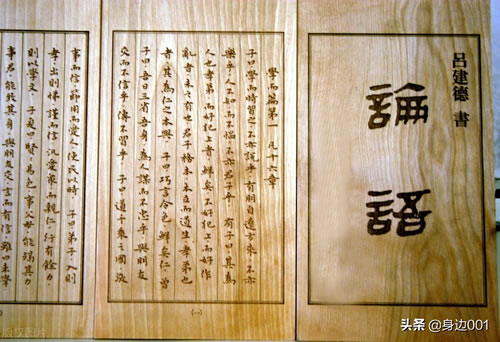 呂建德 書
論語
學而篇第一 凡十六章
子曰學而時習之不亦説乎有朋自遠方來不亦
樂乎人不知而不慍不亦君子乎 有子曰其為
人也孝弟而好犯上者鮮矣不好犯上而好作
亂者未之有也君子務本本立而道生孝弟也
者其為仁之本與 子曰巧言令色鮮矣仁 曾
子曰吾日三省吾身為人謀而不忠乎與朋友
交而不信乎傳不習乎 子曰道千乘之國敬
(一)
事而信節用而愛人使民以時 子曰弟子入則
孝出則悌謹而信汎愛眾而親仁行有餘力
則以學文 子夏曰賢賢易色事父母能竭其力
事君能致其身與朋友交言而有信雖曰未學
头条 @身边001